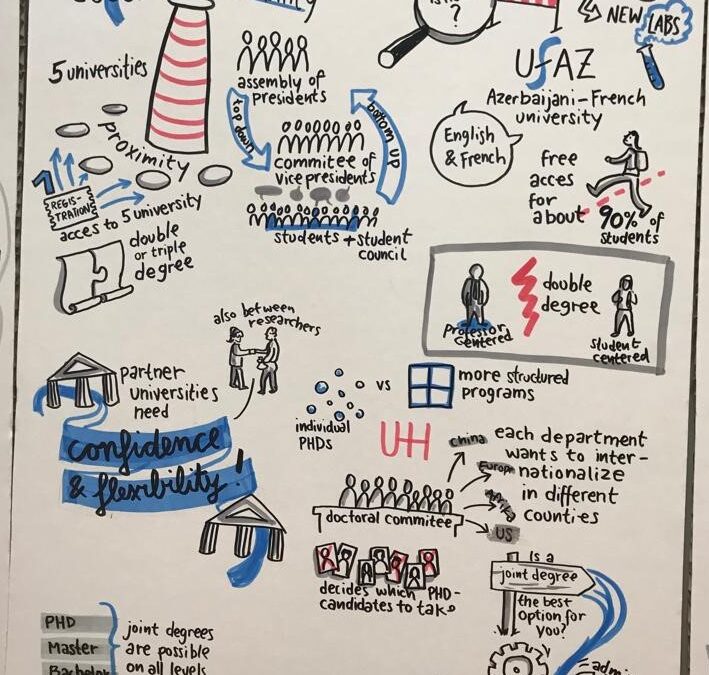 ?
NEW LABS
5 universities
proximity
1 REGIS-
TRATION
acces to 5 university
double
or triple
degree
assembly of
presidents
top down
bottom up
commitee of
vice presidents
students + student
council
UFAZ
Azerbaijani-French
university
English
& French
free
acces
for
about 90% of
students
Professor
centered
double
degree
student
centered
also between
researchers
partner
universities
need
confidence
& flexibility!
individual
PHDs
vs
more structured
programs
UH
doctoral commitee
China
Europe
Afrika
US
each department
wants to inter-
nationalize
in different
counties
decides which PHD-
candidates to take
Is a
joint degree
the best
option for
you?
PHD
Master
Bachelor
joint degrees
are possible
on all levels